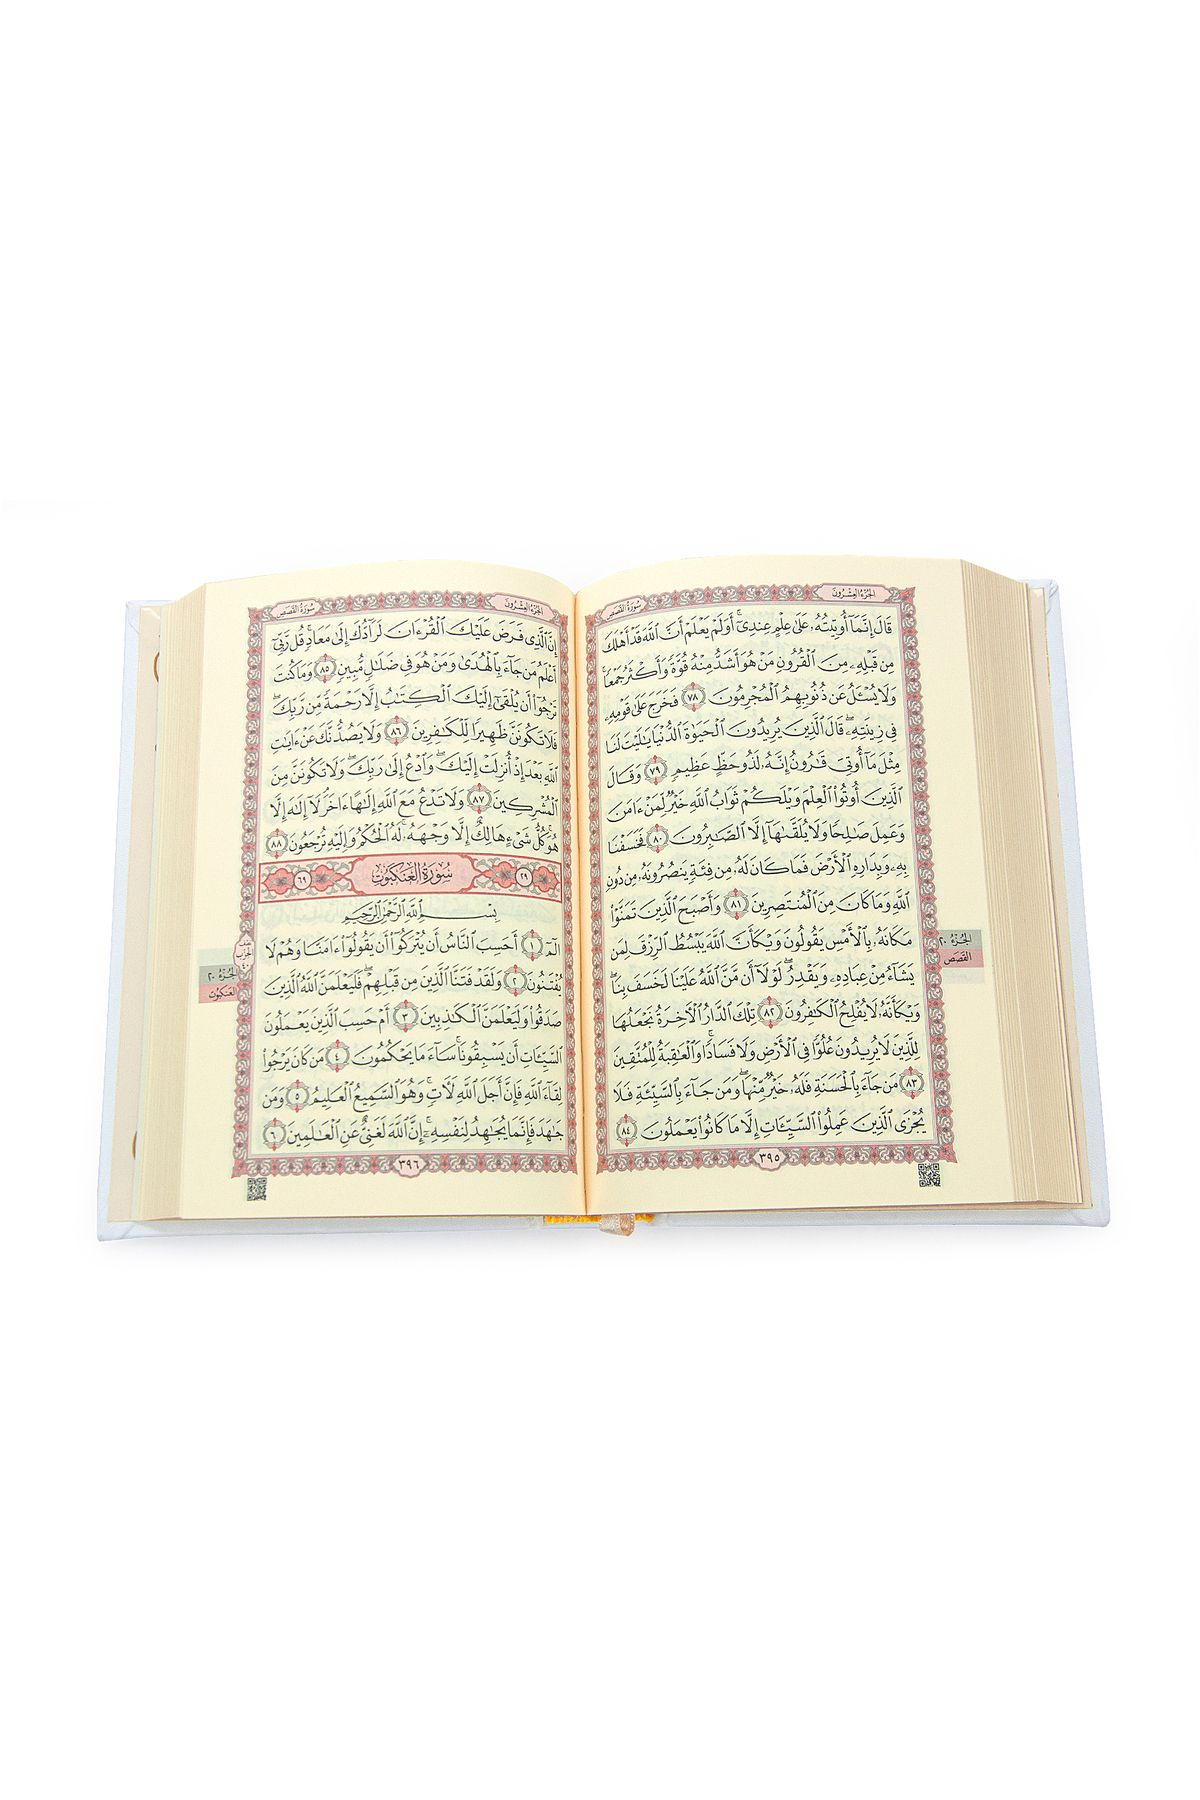 الجزء العشرون
سورة القصص
قَالَ إِنَّمَآ أُوتِيتُهُۥ عَلَىٰ عِلْمٍ عِندِىٓ ۚ أَوَلَمْ يَعْلَمْ أَنَّ ٱللَّهَ قَدْ أَهْلَكَ
مِن قَبْلِهِۦ مِنَ ٱلْقُرُونِ مَنْ هُوَ أَشَدُّ مِنْهُ قُوَّةً وَأَكْثَرُ جَمْعًا ۚ
وَلَا يُسْـَٔلُ عَن ذُنُوبِهِمُ ٱلْمُجْرِمُونَ ٧٨ فَخَرَجَ عَلَىٰ قَوْمِهِۦ
فِى زِينَتِهِۦ ۖ قَالَ ٱلَّذِينَ يُرِيدُونَ ٱلْحَيَوٰةَ ٱلدُّنْيَا يَـٰلَيْتَ لَنَا
مِثْلَ مَآ أُوتِىَ قَـٰرُونُ إِنَّهُۥ لَذُو حَظٍّ عَظِيمٍ ٧٩ وَقَالَ
ٱلَّذِينَ أُوتُوا۟ ٱلْعِلْمَ وَيْلَكُمْ ثَوَابُ ٱللَّهِ خَيْرٌ لِّمَنْ ءَامَنَ
وَعَمِلَ صَـٰلِحًا وَلَا يُلَقَّىٰهَآ إِلَّا ٱلصَّـٰبِرُونَ ٨٠ فَخَسَفْنَا
بِهِۦ وَبِدَارِهِ ٱلْأَرْضَ فَمَا كَانَ لَهُۥ مِن فِئَةٍ يَنصُرُونَهُۥ مِن دُونِ
ٱللَّهِ وَمَا كَانَ مِنَ ٱلْمُنتَصِرِينَ ٨١ وَأَصْبَحَ ٱلَّذِينَ تَمَنَّوْا۟
مَكَانَهُۥ بِٱلْأَمْسِ يَقُولُونَ وَيْكَأَنَّ ٱللَّهَ يَبْسُطُ ٱلرِّزْقَ لِمَن
يَشَآءُ مِنْ عِبَادِهِۦ وَيَقْدِرُ ۖ لَوْلَآ أَن مَّنَّ ٱللَّهُ عَلَيْنَا لَخَسَفَ بِنَا ۖ
وَيْكَأَنَّهُۥ لَا يُفْلِحُ ٱلْكَـٰفِرُونَ ٨٢ تِلْكَ ٱلدَّارُ ٱلْـَٔاخِرَةُ نَجْعَلُهَا
لِلَّذِينَ لَا يُرِيدُونَ عُلُوًّا فِى ٱلْأَرْضِ وَلَا فَسَادًا ۚ وَٱلْعَـٰقِبَةُ لِلْمُتَّقِينَ
٨٣ مَن جَآءَ بِٱلْحَسَنَةِ فَلَهُۥ خَيْرٌ مِّنْهَا ۖ وَمَن جَآءَ بِٱلسَّيِّئَةِ فَلَا
يُجْزَى ٱلَّذِينَ عَمِلُوا۟ ٱلسَّيِّـَٔاتِ إِلَّا مَا كَانُوا۟ يَعْمَلُونَ ٨٤
٣٩٥
الجزء ٢٠
القصص
الجزء العشرون
سورة القصص
إِنَّ ٱلَّذِى فَرَضَ عَلَيْكَ ٱلْقُرْءَانَ لَرَآدُّكَ إِلَىٰ مَعَادٍ ۚ قُل رَّبِّىٓ
أَعْلَمُ مَن جَآءَ بِٱلْهُدَىٰ وَمَنْ هُوَ فِى ضَلَـٰلٍ مُّبِينٍ ٨٥ وَمَا كُنتَ
تَرْجُوٓا۟ أَن يُلْقَىٰٓ إِلَيْكَ ٱلْكِتَـٰبُ إِلَّا رَحْمَةً مِّن رَّبِّكَ ۖ
فَلَا تَكُونَنَّ ظَهِيرًا لِّلْكَـٰفِرِينَ ٨٦ وَلَا يَصُدُّنَّكَ عَنْ ءَايَـٰتِ
ٱللَّهِ بَعْدَ إِذْ أُنزِلَتْ إِلَيْكَ ۖ وَٱدْعُ إِلَىٰ رَبِّكَ ۖ وَلَا تَكُونَنَّ مِنَ
ٱلْمُشْرِكِينَ ٨٧ وَلَا تَدْعُ مَعَ ٱللَّهِ إِلَـٰهًا ءَاخَرَ ۘ لَآ إِلَـٰهَ إِلَّا
هُوَ ۚ كُلُّ شَىْءٍ هَالِكٌ إِلَّا وَجْهَهُۥ ۚ لَهُ ٱلْحُكْمُ وَإِلَيْهِ تُرْجَعُونَ ٨٨
٢٩ سُورَةُ العَنكَبُوتِ ٦٩
بِسْمِ ٱللَّهِ ٱلرَّحْمَـٰنِ ٱلرَّحِيمِ
الٓمٓ ١ أَحَسِبَ ٱلنَّاسُ أَن يُتْرَكُوٓا۟ أَن يَقُولُوٓا۟ ءَامَنَّا وَهُمْ لَا
يُفْتَنُونَ ٢ وَلَقَدْ فَتَنَّا ٱلَّذِينَ مِن قَبْلِهِمْ ۖ فَلَيَعْلَمَنَّ ٱللَّهُ ٱلَّذِينَ
صَدَقُوا۟ وَلَيَعْلَمَنَّ ٱلْكَـٰذِبِينَ ٣ أَمْ حَسِبَ ٱلَّذِينَ يَعْمَلُونَ
ٱلسَّيِّـَٔاتِ أَن يَسْبِقُونَا ۚ سَآءَ مَا يَحْكُمُونَ ٤ مَن كَانَ يَرْجُوا۟
لِقَآءَ ٱللَّهِ فَإِنَّ أَجَلَ ٱللَّهِ لَـَٔاتٍ ۚ وَهُوَ ٱلسَّمِيعُ ٱلْعَلِيمُ ٥ وَمَن
جَـٰهَدَ فَإِنَّمَا يُجَـٰهِدُ لِنَفْسِهِۦٓ ۚ إِنَّ ٱللَّهَ لَغَنِىٌّ عَنِ ٱلْعَـٰلَمِينَ ٦
٣٩٦
نصف
الحزب
٤٠
الجزء ٢٠
العنكبوت